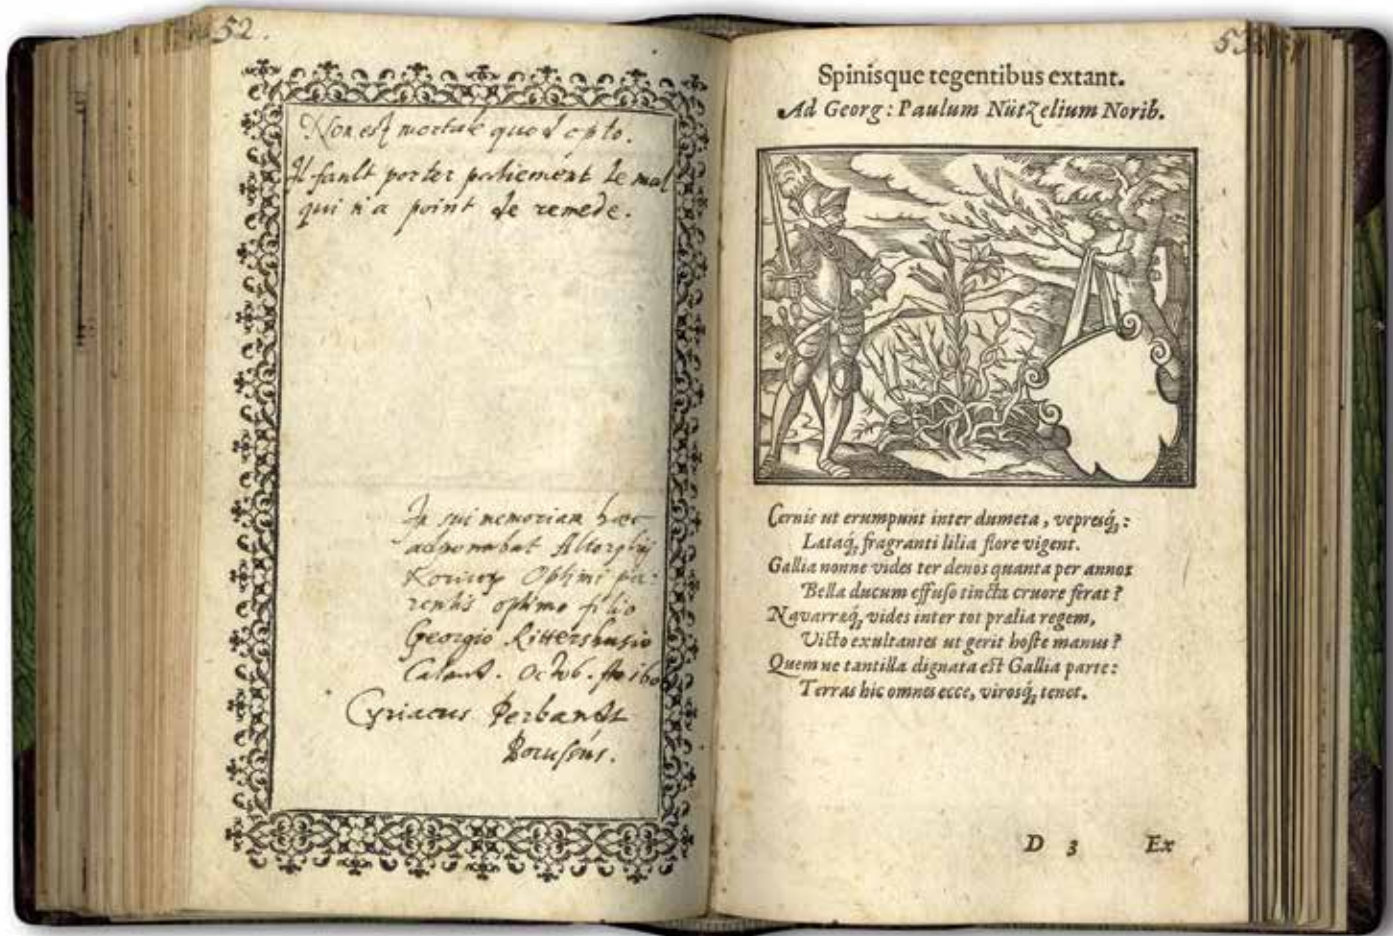 52.
Non est mortale quod opto.
Il fault porter patiement le mal
qui n'a point de remede.
In sui memoriam haec
adponebat Altorphij
Noricor Optimi pa:
rentis optimo filio
Georgio Rittershusio
Calend. Octob.
Cyriacus Perbandt
Borussus.
Spinisque tegentibus extant.
Ad Georg: Paulum Nützelium Norib.
Cernis ut erumpunt inter dumeta, vepresq́;:
Lataq́; fragranti lilia flore vigent.
Gallia nonne vides ter denos quanta per annos
Bella ducum effuso tincta cruore ferat?
Navarraq́; vides inter tot prælia regem,
Victo exultantes ut gerit hoste manus?
Quem ne tantilla dignata est Gallia parte:
Terras hic omnes ecce, virosq́; tenet.
D 3 Ex